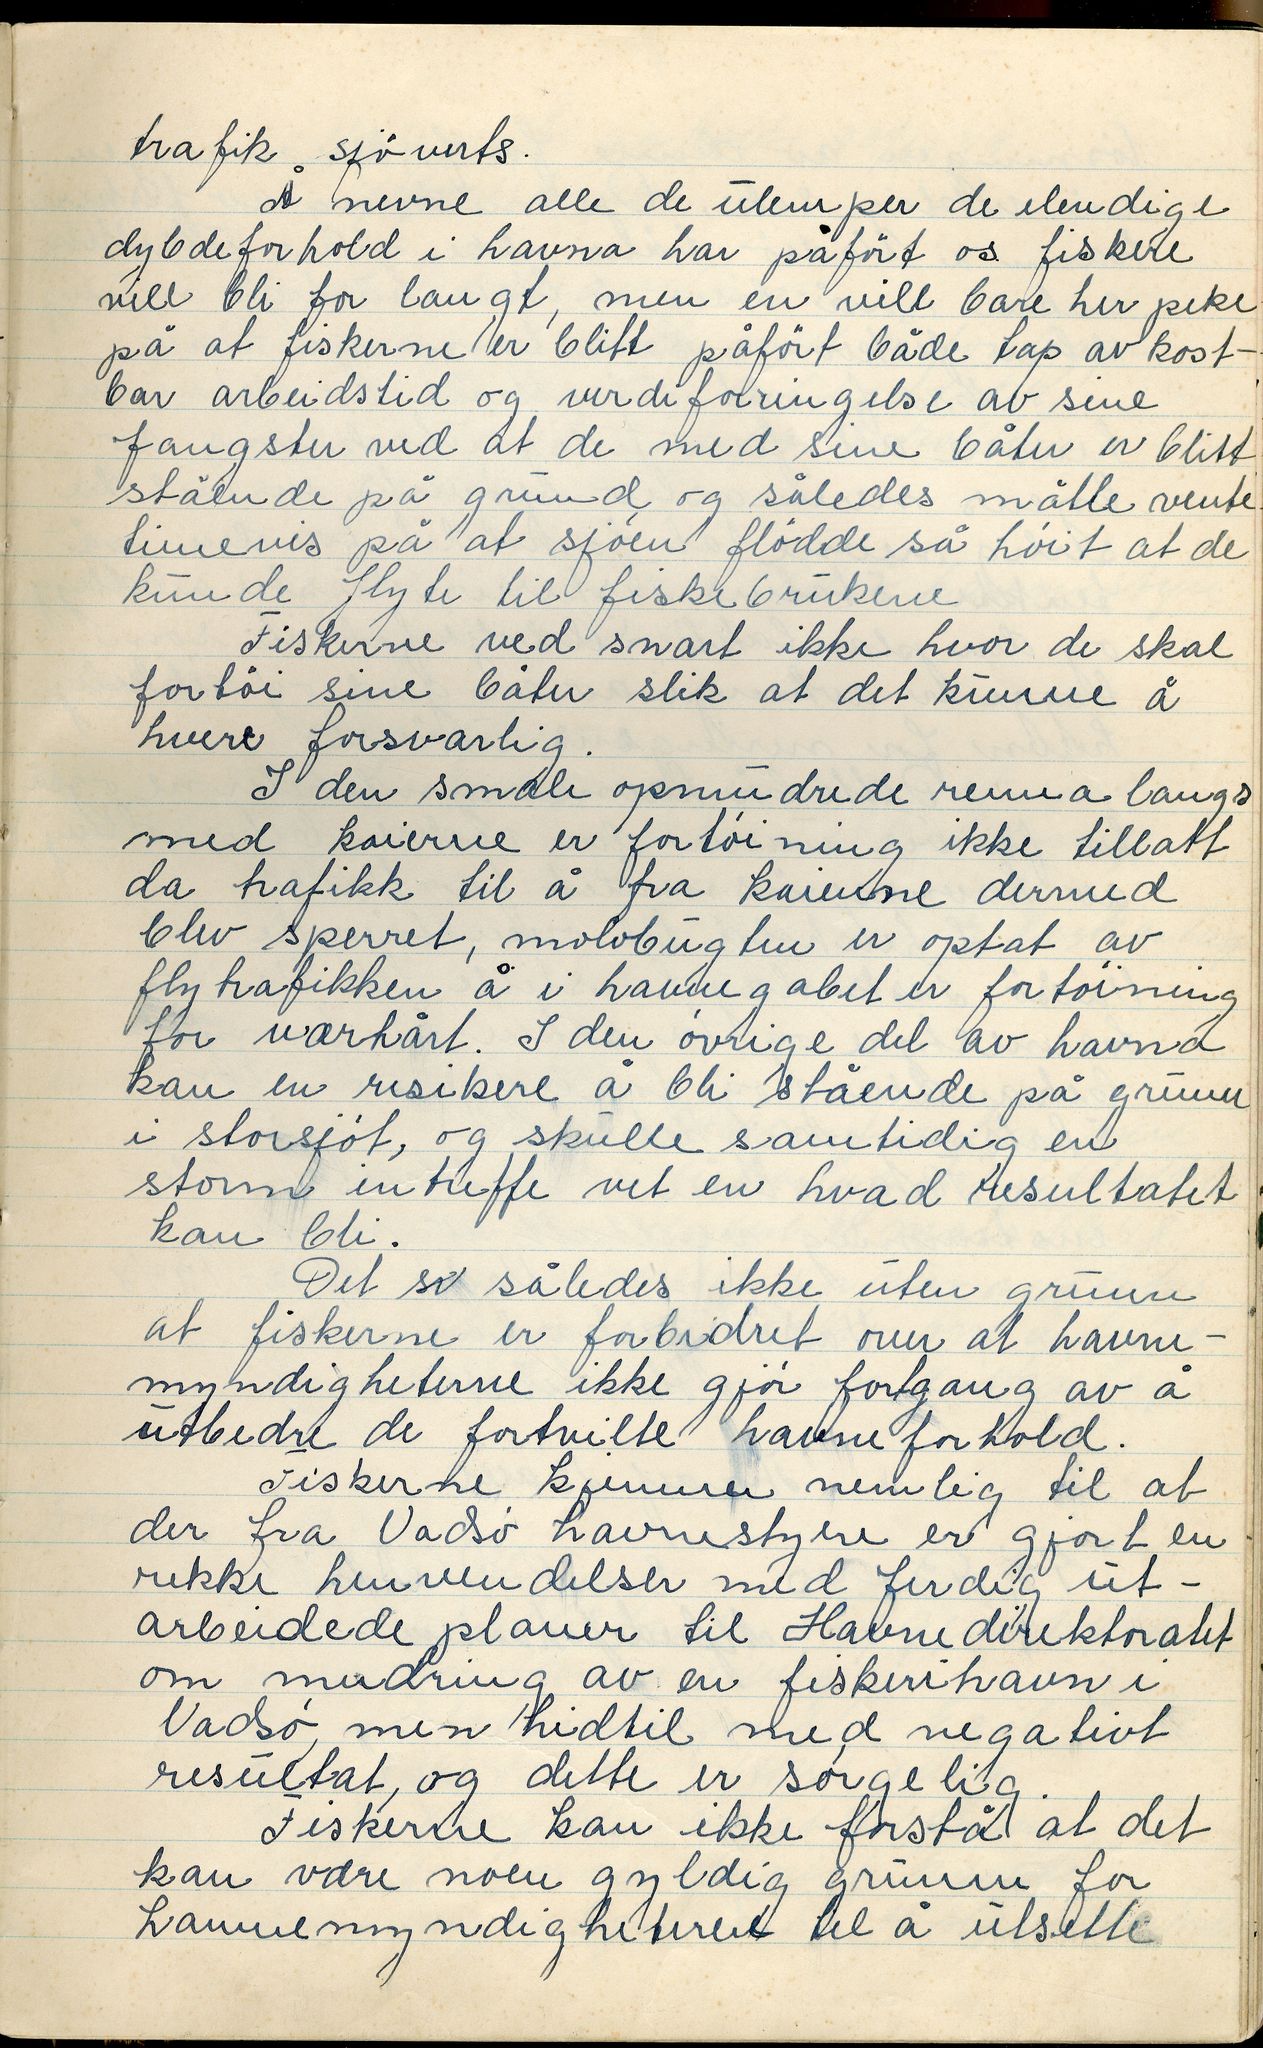 trafik sjöverts.
Å nevne alle de ulemper de elendige
dybdeforhold i havna har påfört os fiskere
vill bli for langt, men en vill bare her peke
på at fiskerne er blitt påfört både tap av kost-
bar arbeidstid og verdiforringelse av sine
fangster ved at de med sine båter er blitt
stående på grund og således måtte vente
timevis på at sjöen flödde så höit at de
kunde flyte til fiskebrukene
Fiskerne ved snart ikke hvor de skal
fortöi sine båter slik at det kunne å
hvere forsvarlig.
I den smale opmudrede renna langs
med kaierne er fortöining ikke tillatt
da trafikk til å fra kaienne dermed
blev sperret, molobugten er optat av
flytrafikken å i havnegabet er fortöining
for værhårt. I den övrige del av havna
kan en risikere å bli stående på grunn
i storsjöt, og skulle samtidig en
storm intreffe vet en hvad resultatet
kan bli.
Det er således ikke uten grunn
at fiskerne er forbedret over at havne-
myndigheterne ikke gjör fortgang av å
utbedre de fortvilte havneforhold.
Fiskerne kjenner nemlig til at
der fra Vadsö havnestyre er gjort en
rekke henvendelser med ferdig ut-
arbeidede planer til Havnedirektoratet
om mudring av en fiskerihavn i
Vadsö, men hidtil med negativt
resultat, og dette er sörgelig.
Fiskerne kan ikke forstå at det
kan være noen gyldig grunn for
havnemyndigheterne til å utsette